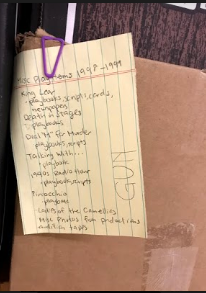 Misc Programs 1998-1999
King Lear
-playbooks, scripts, cards,
newspaper
Death in Stages
-playbooks
Dial "M" for Murder
playbooks, scripts
Talking With...
playbook
radio hour
playbook, scripts
Pinocchio
playbook
of the Comedies
Photos from productions
audition tapes
GUN